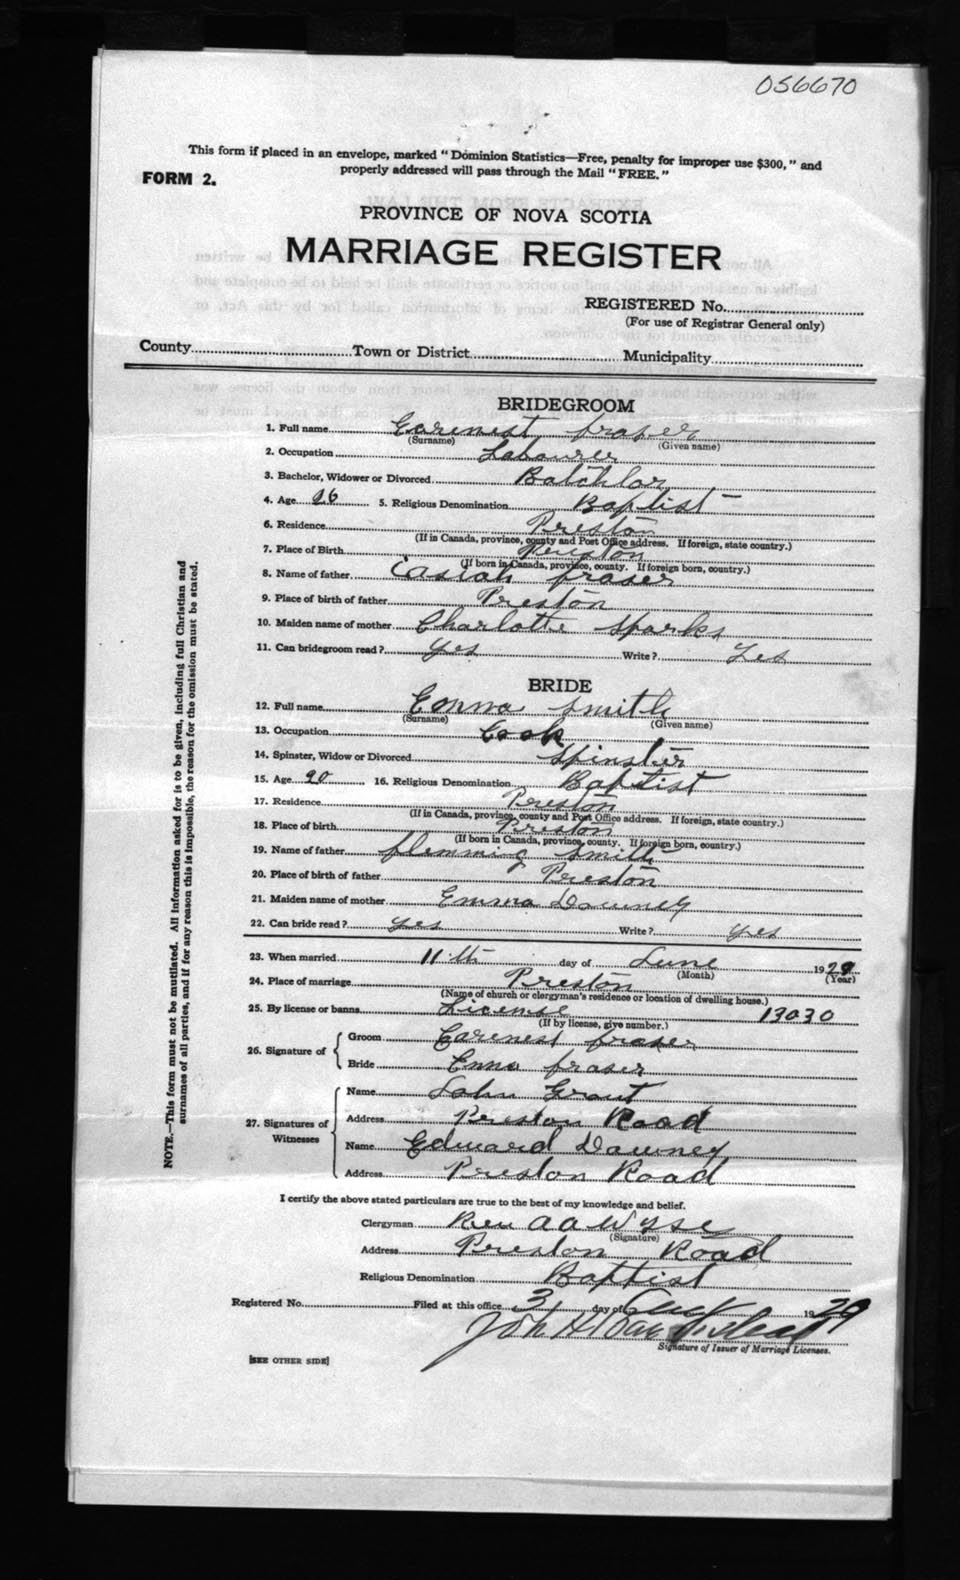 056670
This form if placed in an envelope, marked "Dominion Statistics—Free, penalty for improper use $300," and
properly addressed will pass through the Mail "FREE."
FORM 2.
PROVINCE OF NOVA SCOTIA
MARRIAGE REGISTER
REGISTERED No.
(For use of Registrar General only)
County Town or District Municipality
BRIDEGROOM
1. Full name Earenest fraser
(Surname) (Given name)
2. Occupation Labourer
3. Bachelor, Widower or Divorced Batchlar
4. Age 26 5. Religious Denomination Baptist
6. Residence Preston
(If in Canada, province, county and Post Office address. If foreign, state country.)
7. Place of Birth Preston
(If born in Canada, province, county. If foreign born, country.)
8. Name of father fraser
9. Place of birth of father Preston
10. Maiden name of mother Charlotte Sparks
11. Can bridegroom read? yes Write? Yes
BRIDE
12. Full name Emma Smith
(Surname) (Given name)
13. Occupation Cook
14. Spinster, Widow or Divorced Spinster
15. Age 20 16. Religious Denomination Baptist
17. Residence Preston
(If in Canada, province, county and Post Office address. If foreign, state country.)
18. Place of birth Preston
(If born in Canada, province, county. If foreign born, country.)
19. Name of father flemming Smith
20. Place of birth of father Preston
21. Maiden name of mother Emma Downey
22. Can bride read? yes Write? yes
23. When married 11th day of June 1929
(Month) (Year)
24. Place of marriage Preston
(Name of church or clergyman's residence or location of dwelling house.)
25. By license or banns License 13030
(If by license, give number.)
26. Signature of Groom Earenest fraser
Bride Emma fraser
27. Signatures of Witnesses Name John Grant
Address Preston Road
Name Edward Downey
Address Preston Road
I certify the above stated particulars are true to the best of my knowledge and belief.
Clergyman Rev A A Wyse
(Signature)
Address Preston Road
Religious Denomination Baptist
Registered No. Filed at this office 3 day of 1929
Signature of Issuer of Marriage Licenses.
[SEE OTHER SIDE]
NOTE.—This form must not be mutilated. All information asked for is to be given, including full Christian and
surnames of all parties, and if for any reason this is impossible, the reason for the omission must be stated.